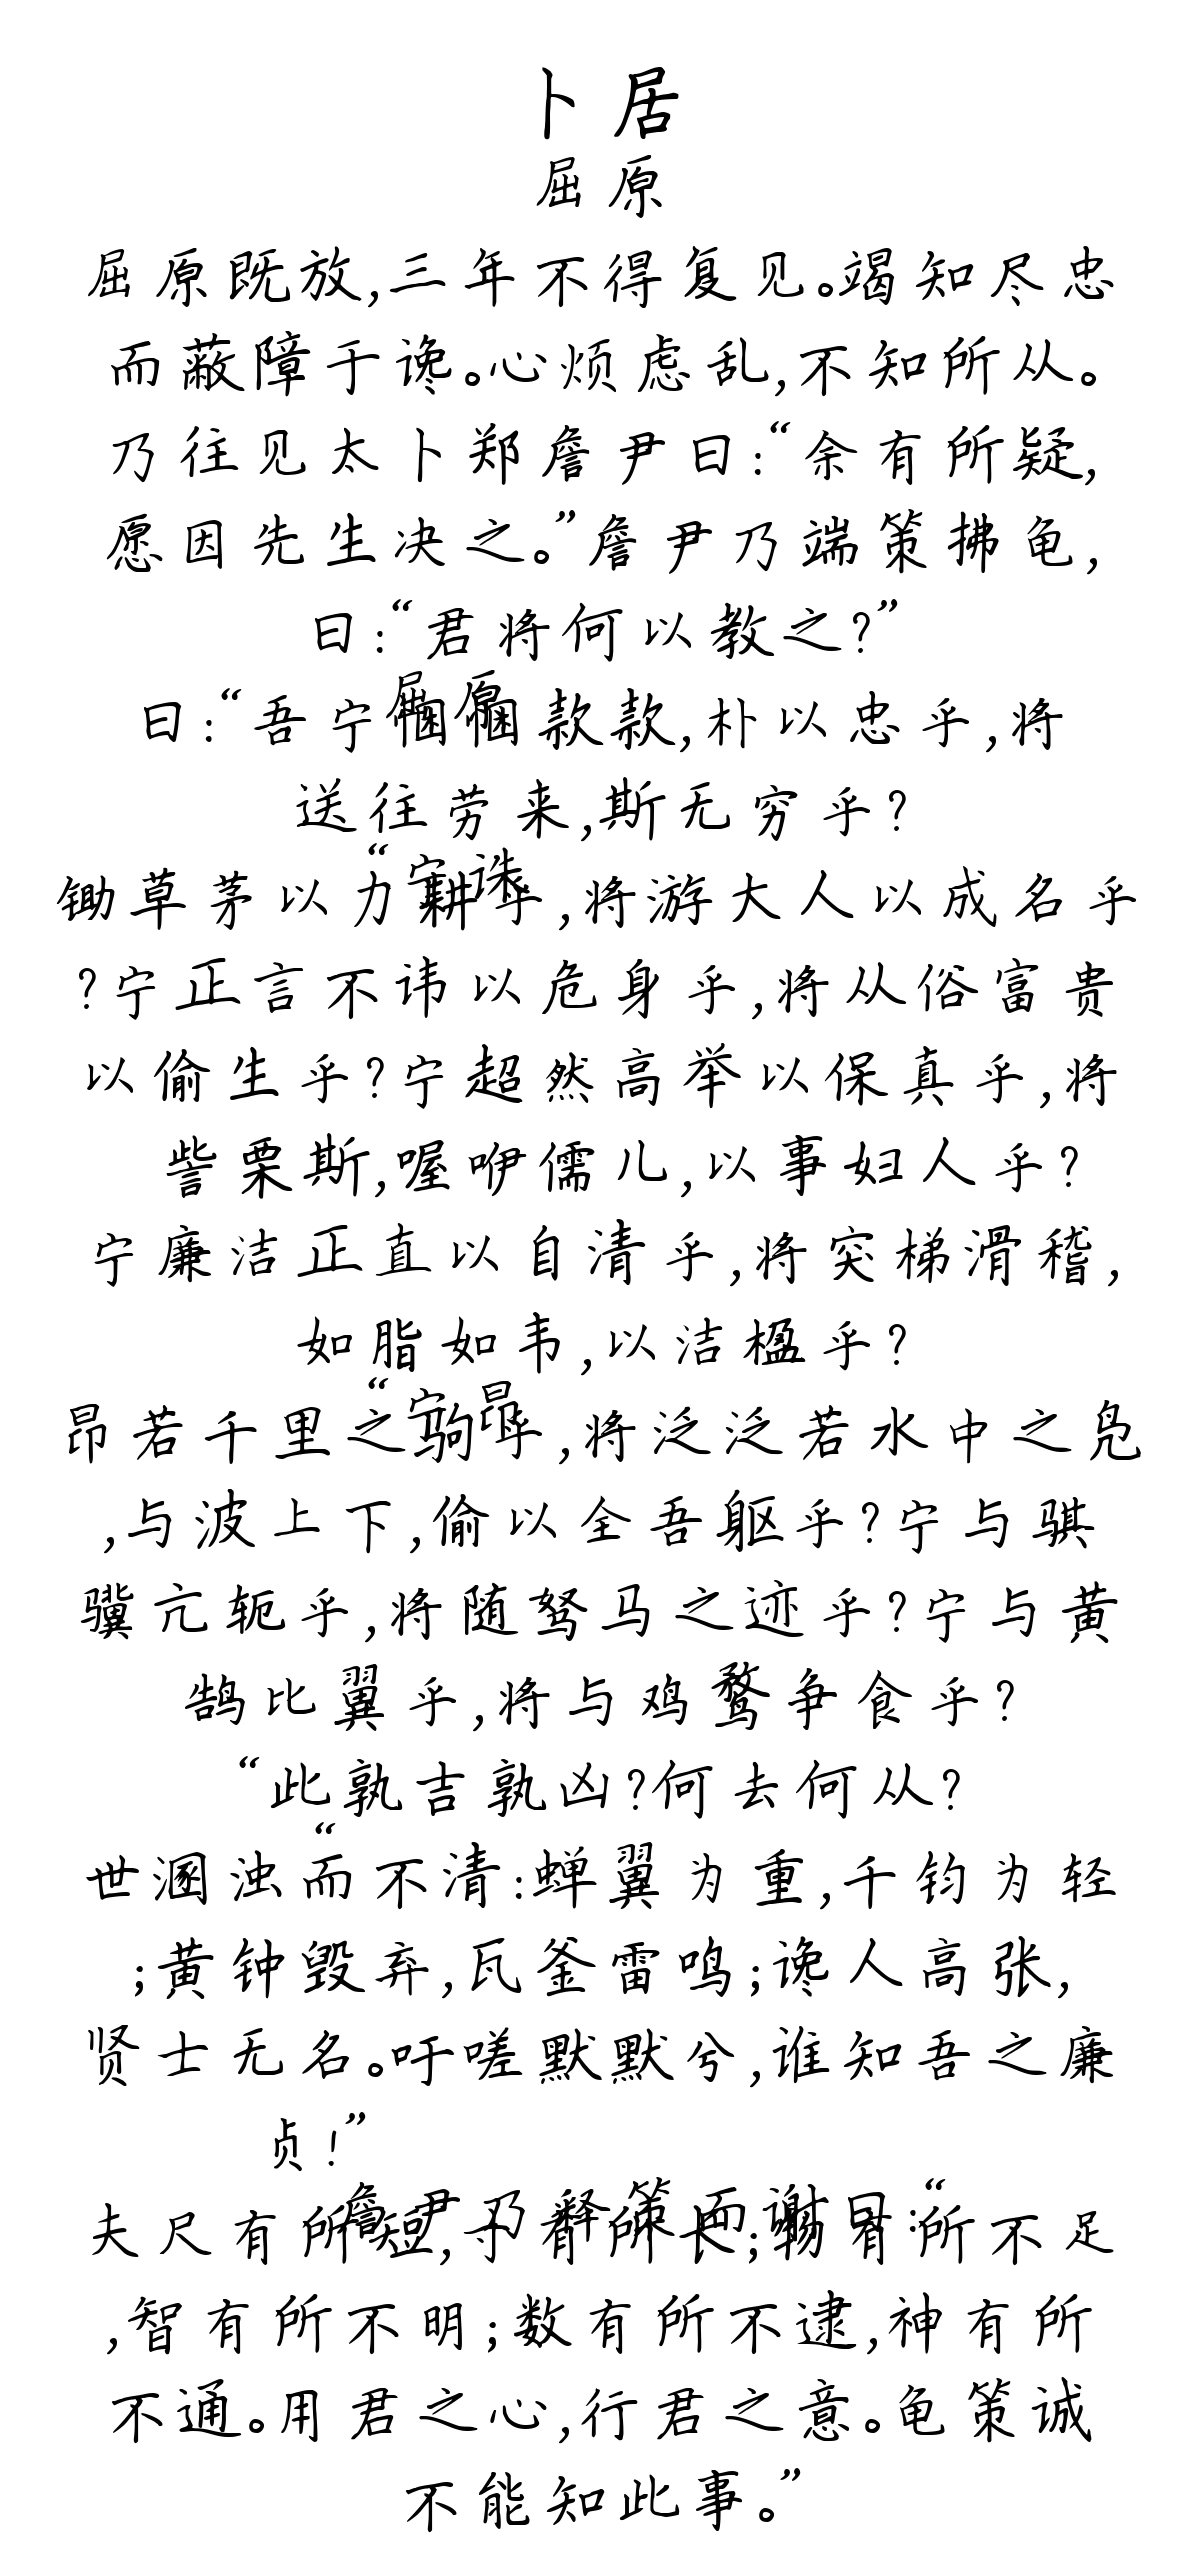 卜居
屈原
屈原既放,三年不得复见。竭知尽忠
而蔽障于谗。心烦虑乱,不知所从。
乃往见太卜郑詹尹曰:“余有所疑,
愿因先生决之。”詹尹乃端策拂龟,
曰:“君将何以教之?”
屈原
曰:“吾宁悃悃款款,朴以忠乎,将
送往劳来,斯无穷乎?
“宁诛
锄草茅以力耕乎,将游大人以成名乎
?宁正言不讳以危身乎,将从俗富贵
以偷生乎?宁超然高举以保真乎,将
訾栗斯,喔咿儒儿,以事妇人乎?
宁廉洁正直以自清乎,将突梯滑稽,
如脂如韦,以洁楹乎?
“宁昂
昂若千里之驹乎,将泛泛若水中之凫
,与波上下,偷以全吾躯乎?宁与骐
骥亢轭乎,将随驽马之迹乎?宁与黄
鹄比翼乎,将与鸡鹜争食乎?
“此孰吉孰凶?何去何从?
“
世溷浊而不清:蝉翼为重,千钧为轻
;黄钟毁弃,瓦釜雷鸣;谗人高张,
贤士无名。吁嗟默默兮,谁知吾之廉
贞!”
詹尹乃释策而谢曰:“
夫尺有所短,寸有所长;物有所不足
,智有所不明;数有所不逮,神有所
不通。用君之心,行君之意。龟策诚
不能知此事。”